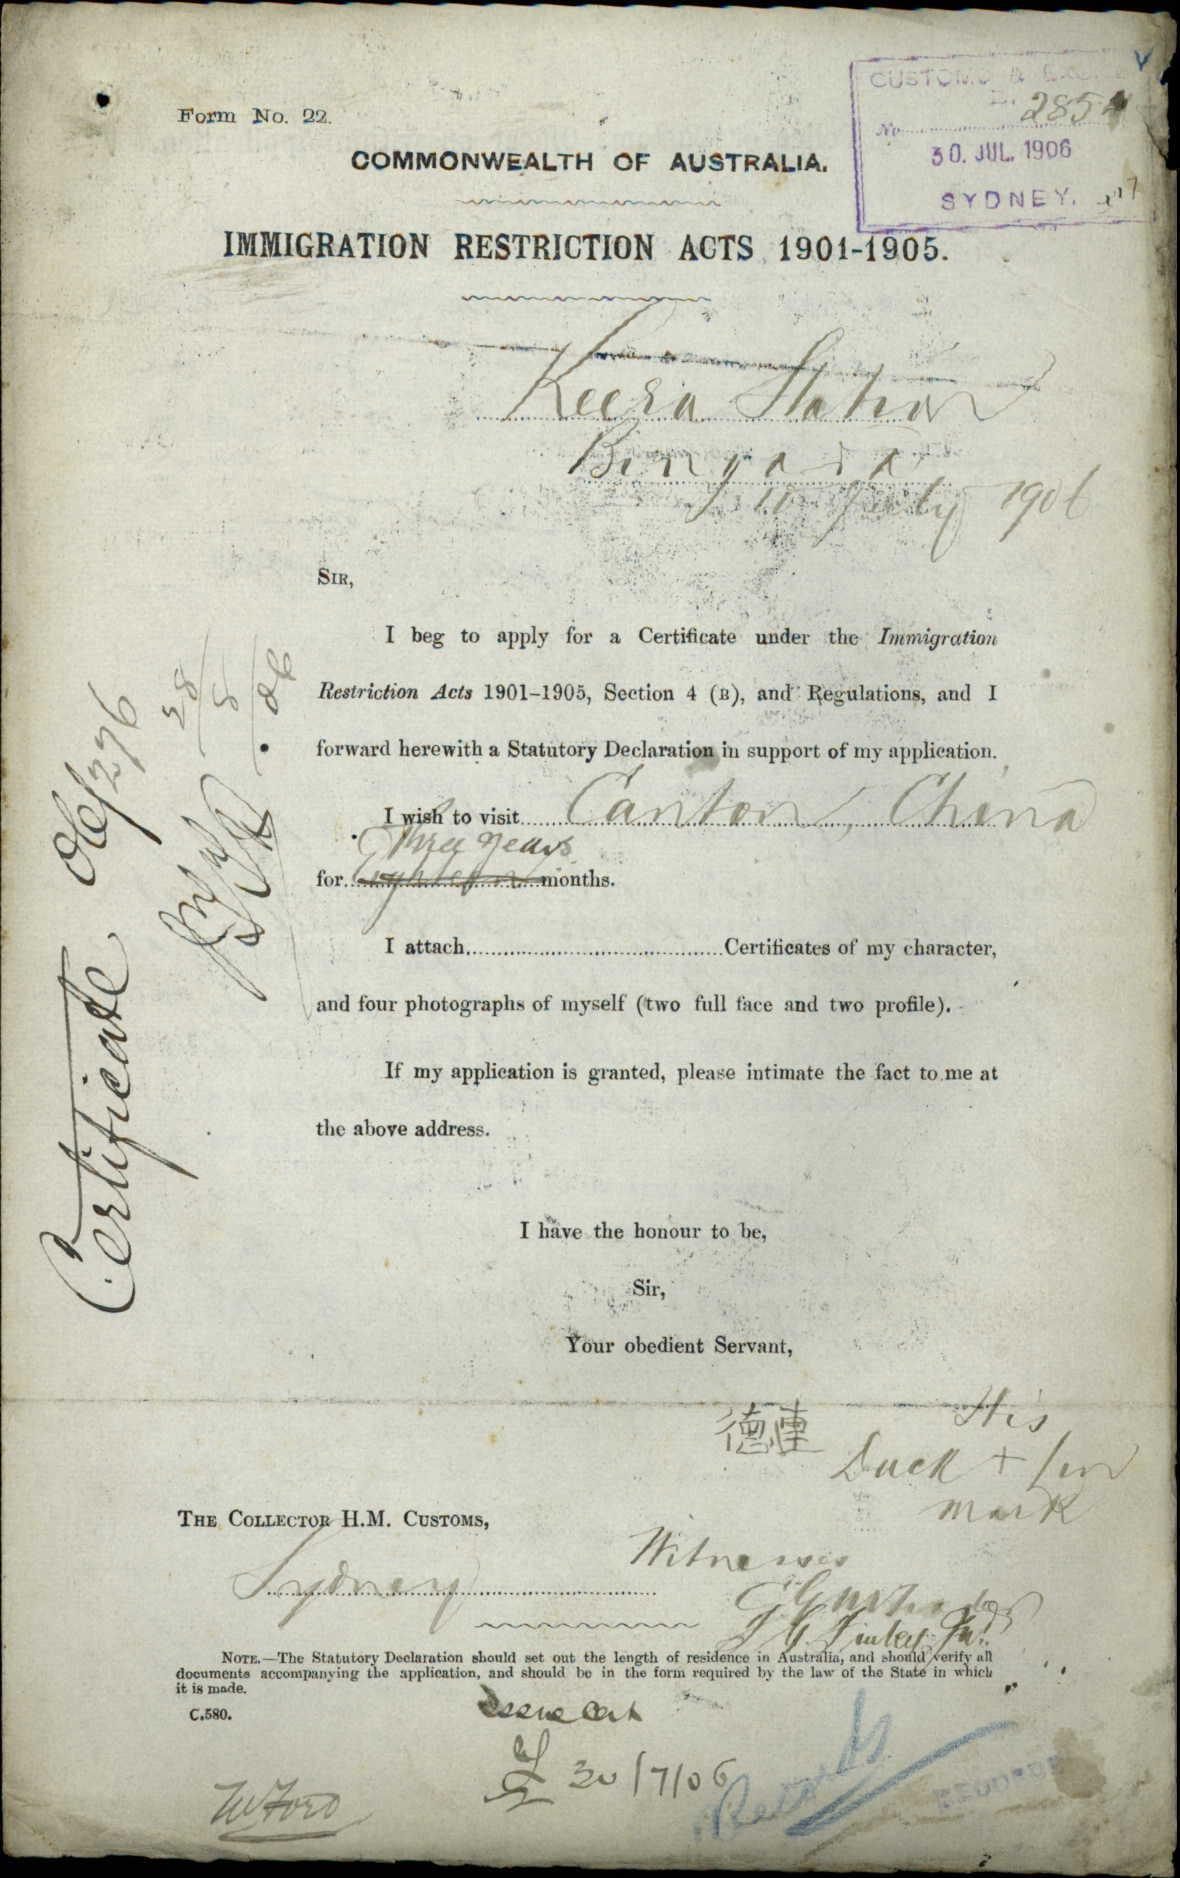 Form No. 22.
CUSTOMS &
No 2854
30. JUL. 1906
SYDNEY.
COMMONWEALTH OF AUSTRALIA.
IMMIGRATION RESTRICTION ACTS 1901-1905.
Keera Station
Bingara
10 July 1906
SIR,
I beg to apply for a Certificate under the Immigration
Restriction Acts 1901–1905, Section 4 (B), and Regulations, and I
forward herewith a Statutory Declaration in support of my application.
I wish to visit Canton, China
Three years
for Eighteen months.
I attach Certificates of my character,
and four photographs of myself (two full face and two profile).
If my application is granted, please intimate the fact to me at
the above address.
I have the honour to be,
Sir,
Your obedient Servant,
德連
His
Duck + Lin
mark
THE COLLECTOR H.M. CUSTOMS,
Sydney
Witnesses
NOTE.—The Statutory Declaration should set out the length of residence in Australia, and should verify all
documents accompanying the application, and should be in the form required by the law of the State in which
it is made.
C.580.
Issue Cert
30/7/06
W Ford
Records
Certificate 06/276
28/8/06